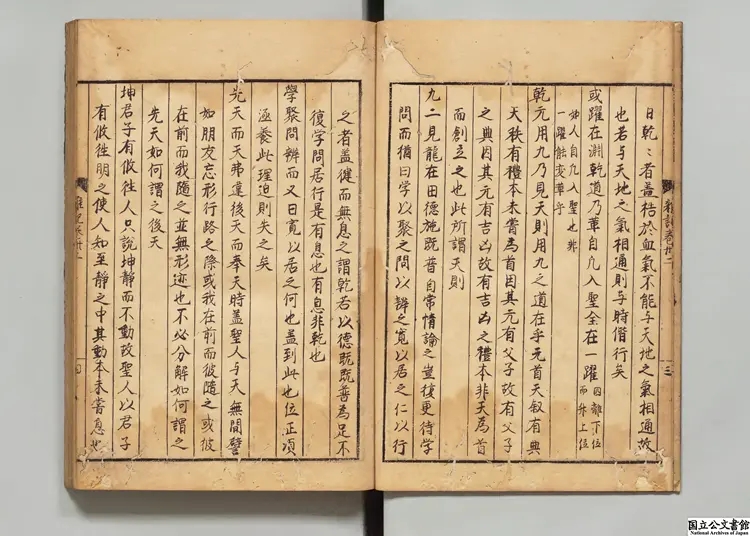 日乾〻者蓋梏於血氣不能与天地之氣相通故
也若与天地之氣相通則与時偕行矣
或躍在淵乾道乃革自凡入聖全在一躍因離下位而升上位
如人自凡入聖也非一躍能变革乎
乾元用九乃見天則用九之道在乎元首天叙有典
天秩有禮本未嘗為首因其元有父子故有父子
之典因其元有吉凶故有吉凶之禮本非天為首
而創立之也此所謂天則
九二見龍在田德施既普自常情論之豈復更待学
問而猶曰学以聚之問以辨之寬以居之仁以行
之者蓋健而無息之謂乾若以德既既普為足不
復学問居行是有息也有息非乾也
學聚問辨而又曰寬以居之何也蓋到此也位正項
涵養此理迫則失之矣
先天而天弗違後天而奉天時蓋聖人与天無間譬
如朋友忘形行路之際或我在前而彼隨之或彼
在前而我隨之並無形迹也不必分解如何謂之
先天如何謂之後天
坤君子有攸徃人只說坤靜而不動故聖人以君子
有攸徃明之使人知至靜之中其動本未嘗息也
三
四
国立公文書館
National Archives of Japan